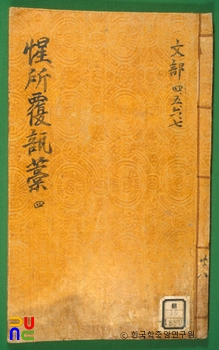 文部 四五六七
惺所覆瓿藁 四
共八
© 한국학중앙연구원